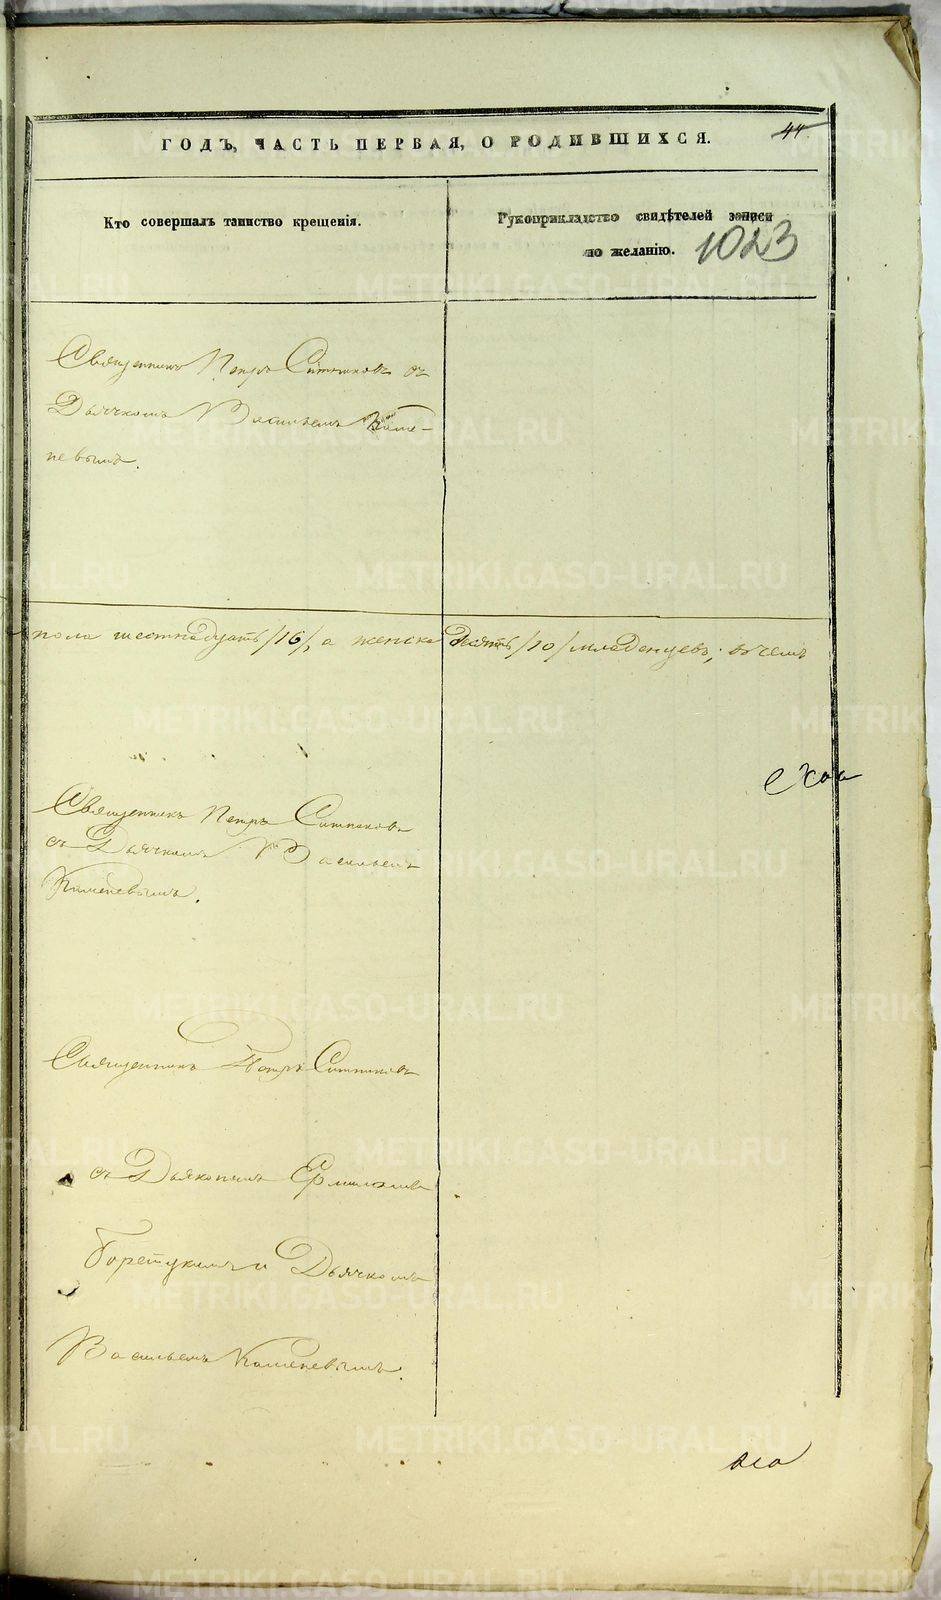 44
ГОДЪ, ЧАСТЬ ПЕРВАЯ, О РОДИВШИХСЯ.
Кто совершалъ таинство крещенія.
Рукоприкладство свидѣтелей записи
по желанію.
1023
Священникъ Петръ Ситниковъ съ
Дьячкомъ Васильемъ Каме-
невымъ.
пола шестнадцать /16/, а женска десять /10/ младенцевъ; всѣмъ
Священникъ Петръ Ситниковъ
съ Дьячкомъ Васильемъ
Каменевымъ.
Священникъ Петръ Ситниковъ
съ Дьякономъ
и Дьячкомъ
Васильемъ Каменевымъ.
METRIKI.GASO-URAL.RU